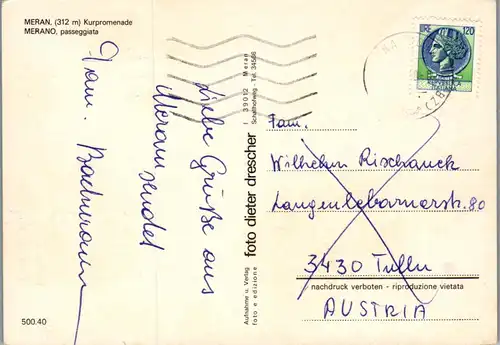 MERAN, (312 m) Kurpromenade
MERANO, passeggiata
Liebe Grüße aus
Meran sendet
Fam.
500.40
Aufnahme u. Verlag
foto e edizione
foto dieter drescher
I 39012 Meran
Schafferweg - Tel. 34568
120
Fam.
Wilhelm Rischanek
Langenlebarnerstr. 80
3430 Tulln
nachdruck verboten - riproduzione vietata
AUSTRIA